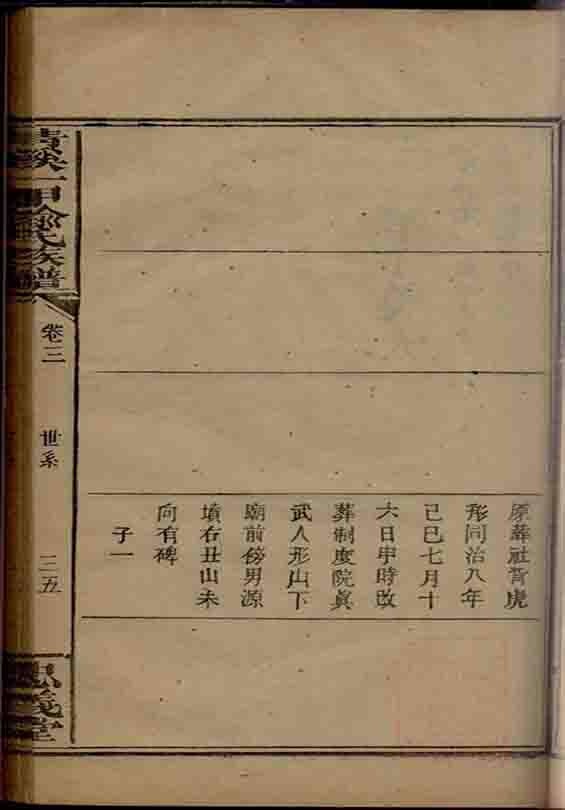 原葬社背虎
形同治八年
己巳七月十
六日申時改
葬制度院眞
武人形山下
廟前傍男源
墳右丑山未
向有碑
子一
一甲 氏族譜
卷三
世系
三五
忠義堂